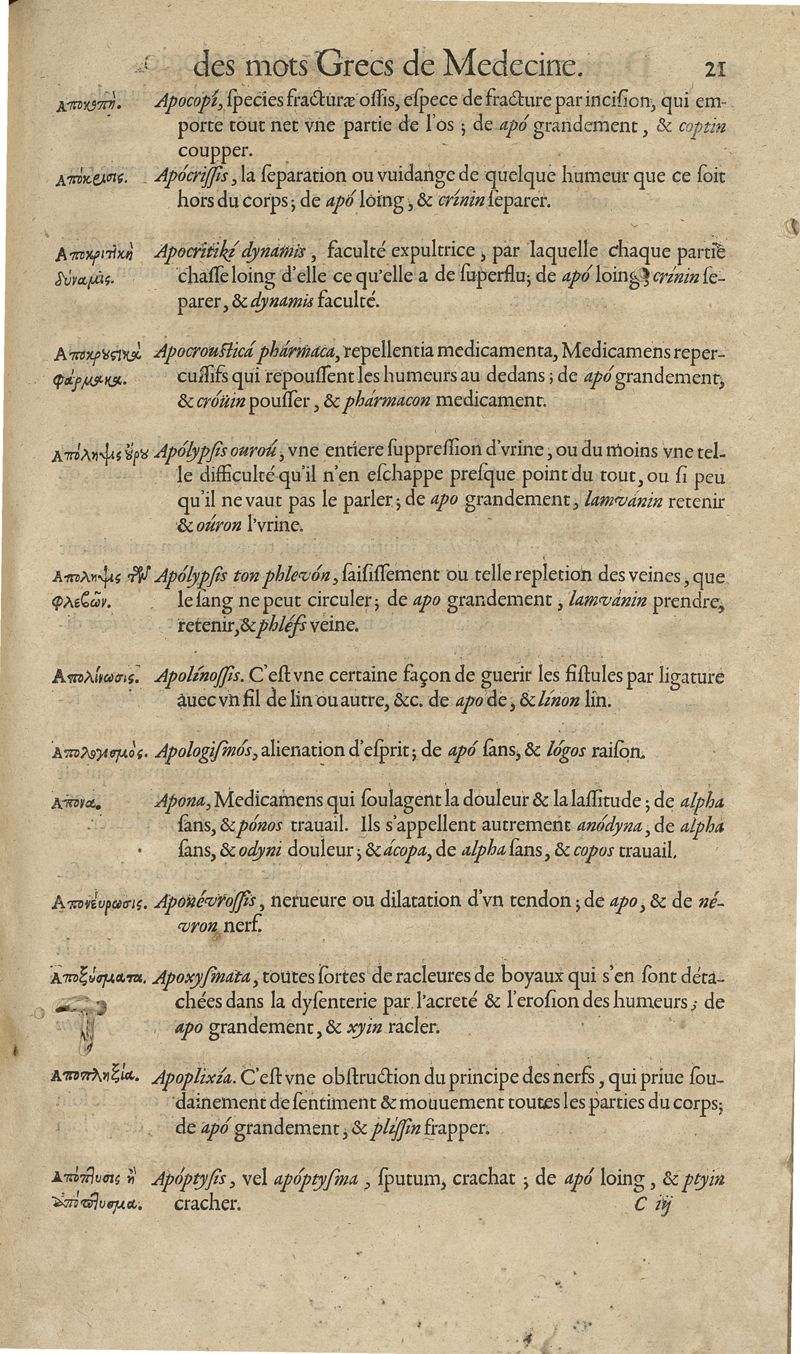 des mots Grecs de Medecine. 21
Αποκοπὴ. Apocopí, ſpecies fracturæ oſſis, eſpece de fracture par inciſion, qui em-
porte tout net vne partie de l'os ; de apó grandement, & coptin
coupper.
Απόκρισις. Apócriſſis, la ſeparation ou vuidange de quelque humeur que ce ſoit
hors du corps ; de apó loing, & crínin ſeparer.
Αποκριτικὴ Apocritikí dynamis, faculté expultrice, par laquelle chaque partie
δύναμις. chaſſe loing d'elle ce qu'elle a de ſuperflu; de apó loing, crínin ſe-
parer, & dynamis faculté.
Αποκρουστικὰ Apocrouſticá phármaca, repellentia medicamenta, Medicamens reper-
φάρμακα. cuſſifs qui repouſſent les humeurs au dedans ; de apó grandement,
& króüin pouſſer, & phármacon medicament.
Απόληψις ὄρου Apólypſis ouroú, vne entiere ſuppreſſion d'vrine, ou du moins vne tel-
le difficulté qu'il n'en eſchappe preſque point du tout, ou ſi peu
qu'il ne vaut pas le parler ; de apo grandement, lamvánin retenir
& oúron l'vrine.
Αποληψις τῶν Apólypſis ton phlevón, ſaiſiſſement ou telle repletion des veines, que
φλεβῶν. le ſang ne peut circuler ; de apo grandement, lamvánin prendre,
retenir, & phléfs veine.
Απολίνωσις. Apolínoſſis. C'eſt vne certaine façon de guerir les fiſtules par ligature
auec vn fil de lin ou autre, &c. de apo de, & línon lin.
Απολογισμὸς. Apologiſmós, alienation d'eſprit ; de apó ſans, & lógos raiſon.
Απονα. Apona, Medicamens qui ſoulagent la douleur & la laſſitude ; de alpha
ſans, & pónos trauail. Ils s'appellent autrement anódyna, de alpha
ſans, & odyni douleur ; & ácopa, de alpha ſans, & copos trauail.
Απονεύρωσις. Aponévroſſis, nerueure ou dilatation d'vn tendon ; de apo, & de né-
vron nerf.
Αποξύσματα. Apoxyſmata, toutes ſortes de racleures de boyaux qui s'en ſont déta-
chées dans la dyſenterie par l'acreté & l'eroſion des humeurs ; de
apo grandement, & xyin racler.
Αποπληξία. Apoplixía. C'eſt vne obſtruction du principe des nerfs, qui priue ſou-
dainement de ſentiment & mouuement toutes les parties du corps;
de apó grandement, & plíſſin frapper.
Απόπτυσις ἢ Apóptyſis, vel apóptyſma, ſputum, crachat ; de apó loing, & ptyin
ἀπόπτυσμα. cracher. C iij